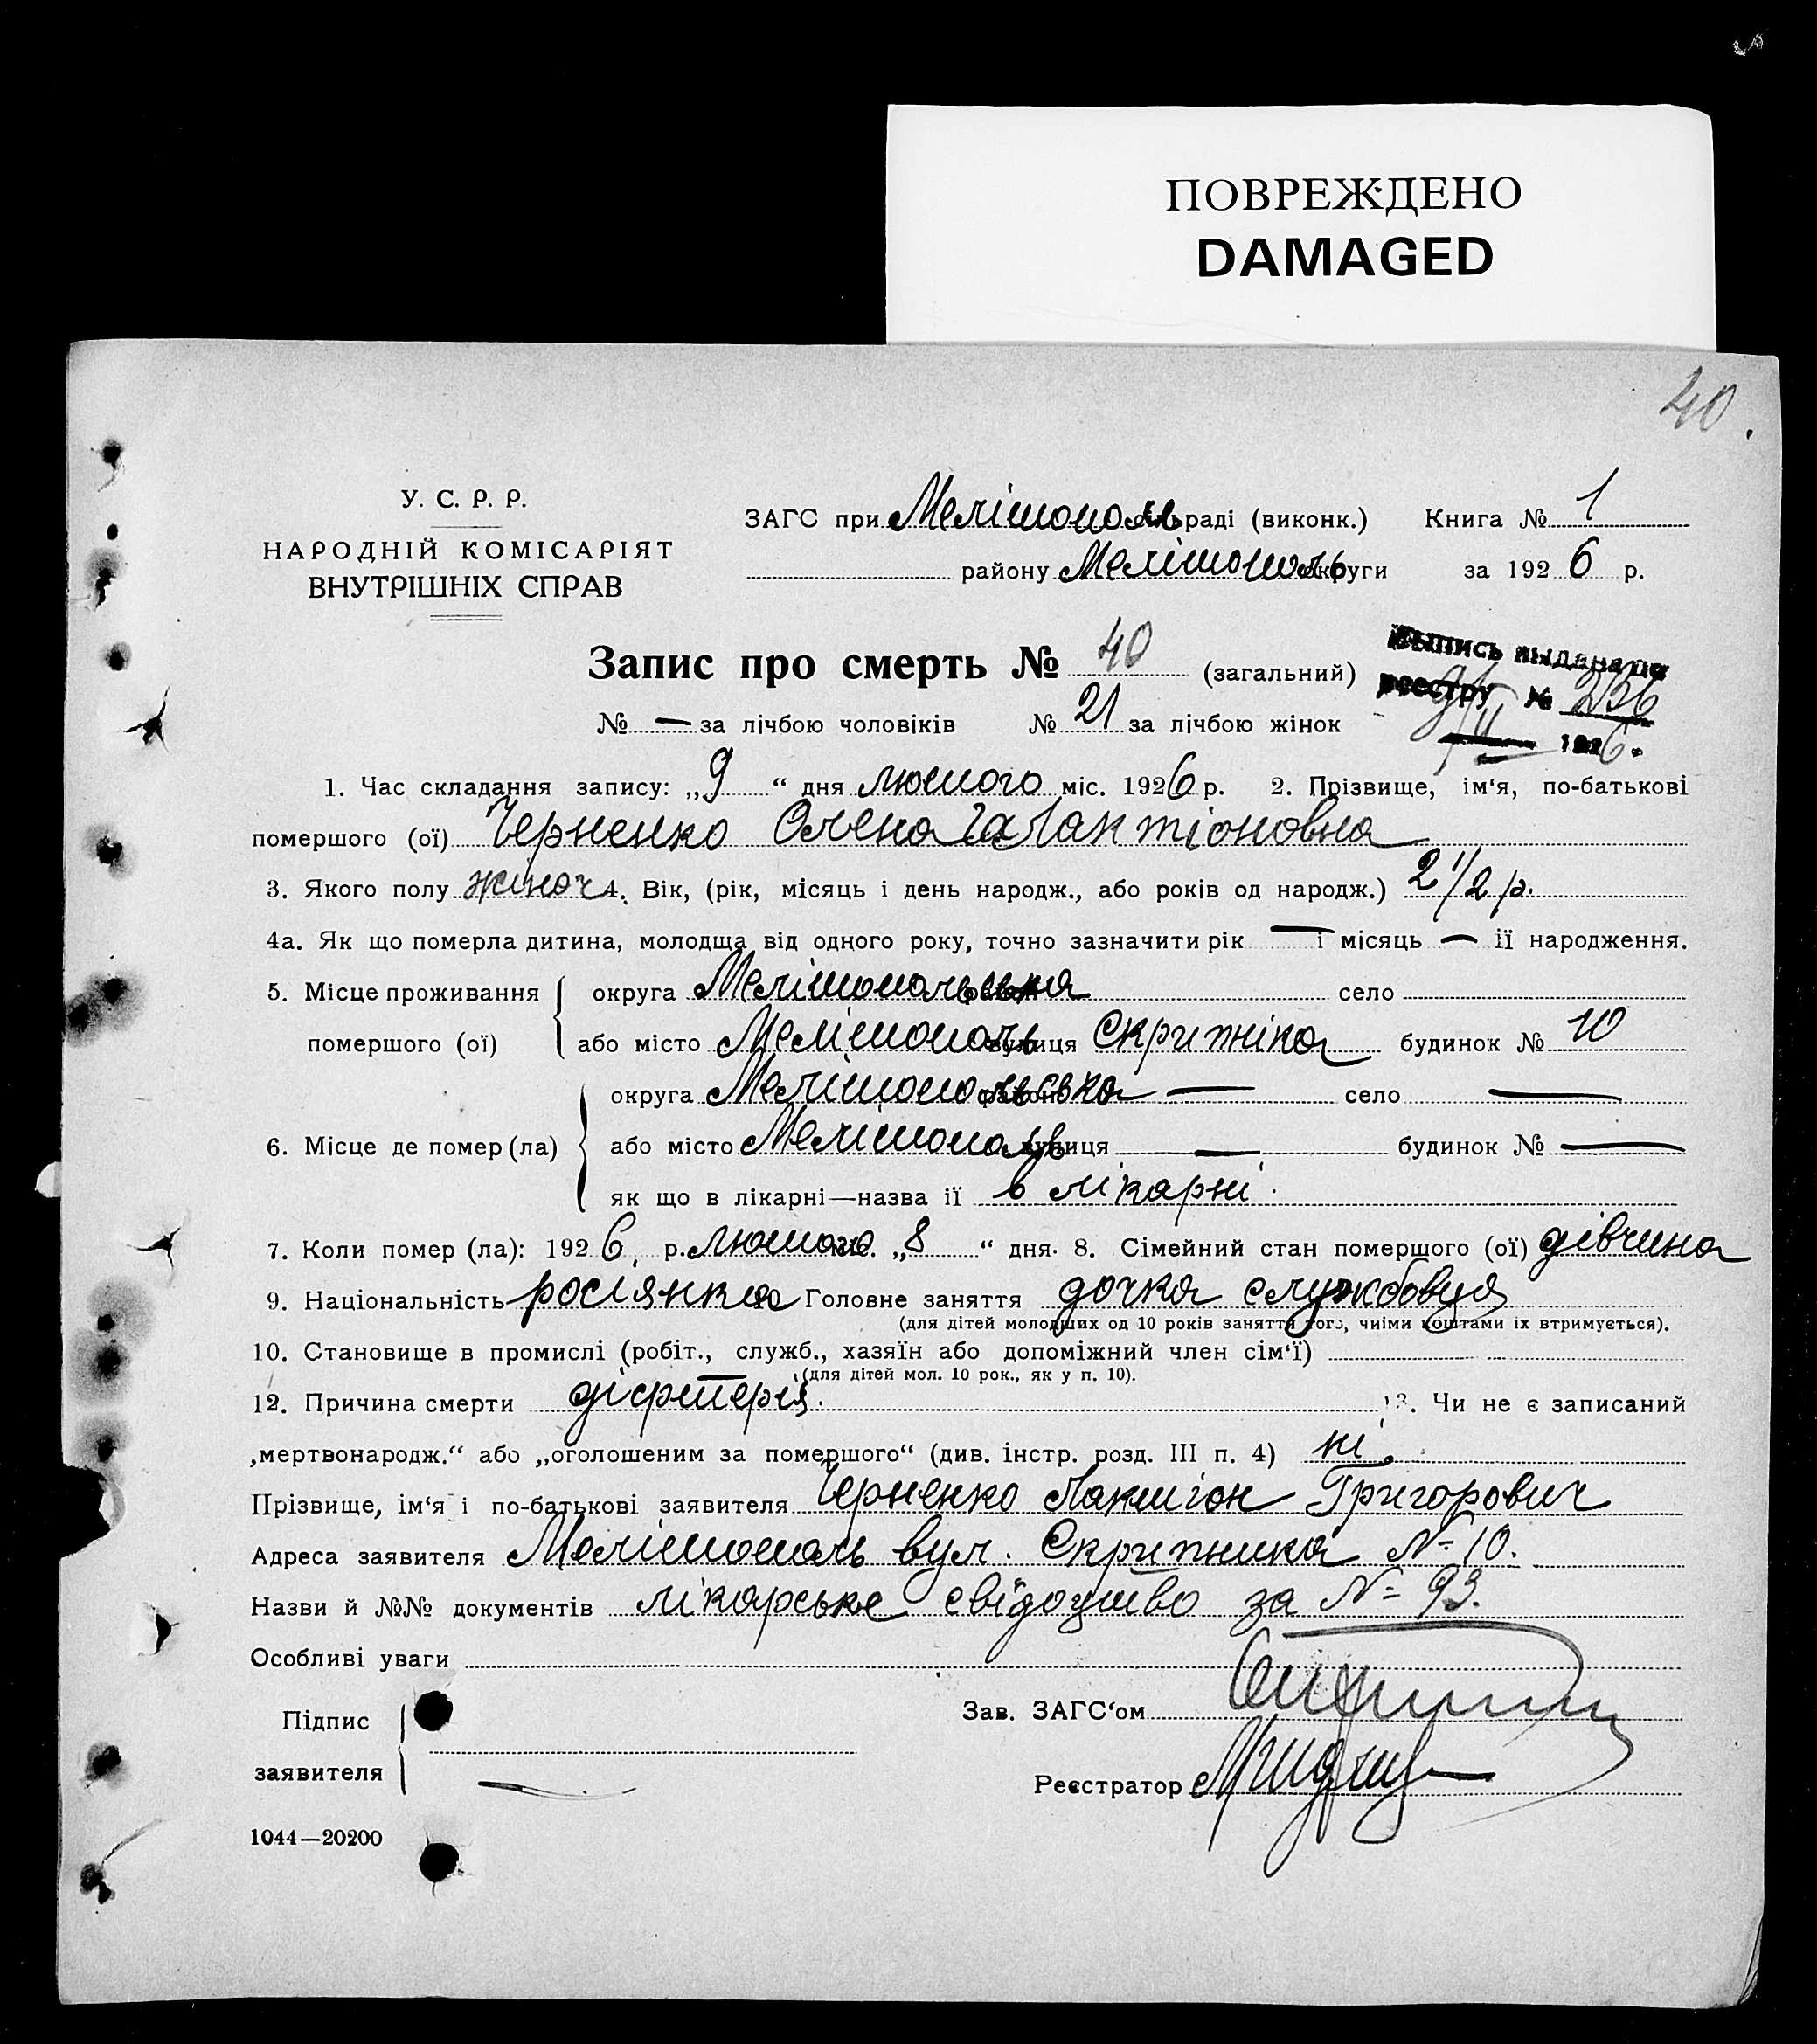 ПОВРЕЖДЕНО
DAMAGED
40.
У. С. Р. Р.
НАРОДНІЙ КОМІСАРІЯТ
ВНУТРІШНІХ СПРАВ
ЗАГС при Мелітополь раді (виконк.) Книга № 1
району Мелітополь округи за 1926 р.
Запис про смерть № 40 (загальний)
Выпись выдана по
реестру № 236
9/II 1926.
№ — за лічбою чоловіків № 21 за лічбою жінок
1. Час складання запису: „9“ дня лютого міс. 1926 р. 2. Прізвище, ім‘я, по-батькові
помершого (ої) Черненко Олена Галактіоновна
3. Якого полу жіноч 4. Вік, (рік, місяць і день народж., або років од народж.) 2 1/2 р.
4а. Як що померла дитина, молодща від одного року, точно зазначити рік — і місяць — її народження.
5. Місце проживання
помершого (ої)
округа Мелітопольська район село
або місто Мелітополь вулиця Скрипніка будинок № 10
6. Місце де помер (ла)
округа Мелітопольська район — село —
або місто Мелітополь вулиця — будинок № —
як що в лікарні—назва її в лікарні.
7. Коли помер (ла): 1926 р. лютого міс. „8“ дня. 8. Сімейний стан помершого (ої) дівчина
9. Національність росіянка 10 Головне заняття дочка службовця
(для дітей молодших од 10 років заняття того, чиїми коштами їх втримується).
10. Становище в промислі (робіт., служб., хазяїн або допоміжний член сім‘ї)
(для дітей мол. 10 рок., як у п. 10).
12. Причина смерти діфтерія. 13. Чи не є записаний
„мертвонародж.“ або „оголошеним за помершого“ (див. інстр. розд. III п. 4) ні.
Прізвище, ім‘я і по-батькові заявителя Черненко Лактіон Григорович
Адреса заявителя Мелітополь вул. Скрипника № 10.
Назви й №№ документів лікарське свідоцтво за № 93.
Особливі уваги
Підпис
заявителя
Зав. ЗАГС‘ом
Реєстратор
1044—20200